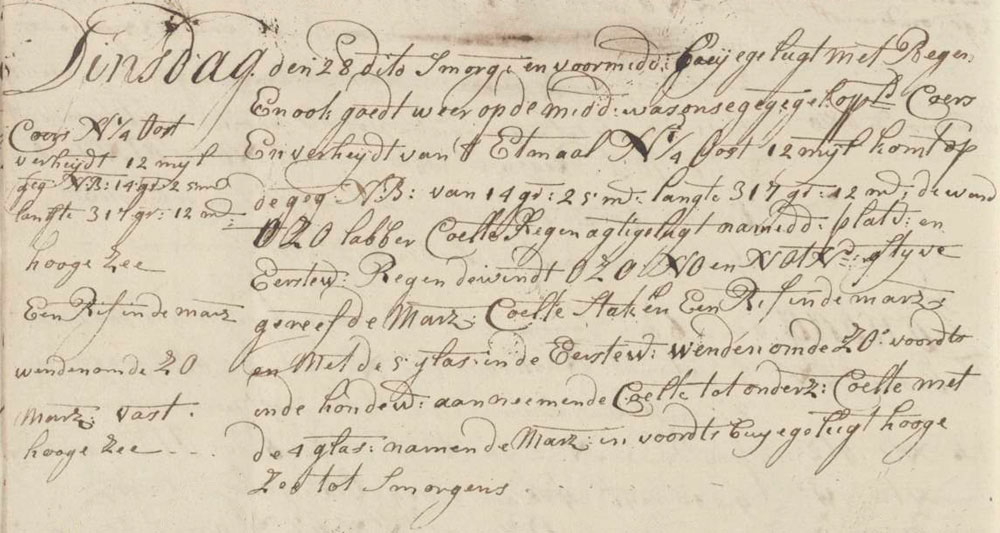 Dinsdag den 28 dito Smorg: en voormidd: Buyege lugt met Regen
En ook goedt weer op de midd: was onse gegegekoppld Coers
En verheydt van't Etmaal N¼ Oost 12 myl komt op
de geg N:B: van 14 gr: 25 md: langte 317 gr: 12 md; de wind
OZO labber Coelte Regenagtige lugt namidd: plats: en
Eerstew: Regen de windt OZO NO en styve
gereefde Marz: Coelte staken Een Rif in de marz:
en Met de 5 glas: in de Eerstew: wenden om de ZO: voordts
in de hondew: aanneemende Coelte tot onderz: Coelte met
de 4 glas: namen de Marz: in voordts buyege lugt hooge
Zee tot Smorgens.
Coers N¼ Oost
verheydt 12 myl
geg N:B: 14 gr: 25 md
langte 317 gr: 12 md:
hooge Zee
Een Rif in de marz
wenden om de ZO
Marz: vast.
hooge Zee